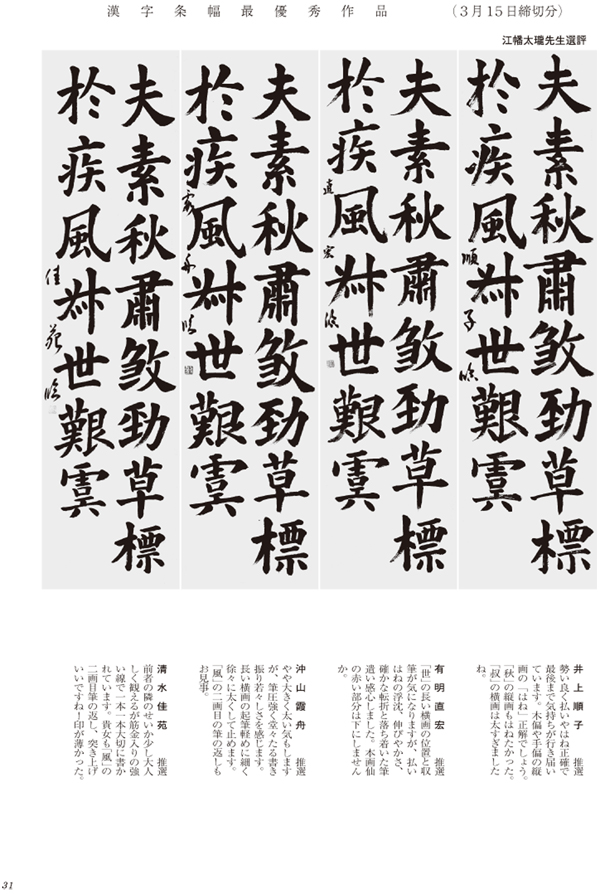 漢字条幅最優秀作品 （３月１５日締切分）
江幡太瓏先生選評
夫素秋肅煞勁草標
於疾風叔世艱虞
順子臨
夫素秋肅煞勁草標
於疾風叔世艱虞
直宏臨
夫素秋肅煞勁草標
於疾風叔世艱虞
霞舟臨
夫素秋肅煞勁草標
於疾風叔世艱虞
佳苑臨
井上順子 推選
勢い良く払いやはね正確で
最後まで気持ちが行き届い
ています。木偏や手偏の縦
画の「はね」正解でしょう。
「秋」の縦画もはねたかった。
「叔」の横画は太すぎました
ね。
有明直宏 推選
「世」の長い横画の位置と収
筆が気になりますが、払い
はねの浮沈、伸びやかさ、
確かな転折と落ち着いた筆
遣い感心しました。本画仙
の赤い部分は下にしません
か。
沖山霞舟 推選
やや大きく太い気もします
が、筆圧強く堂々たる書き
振り若々しさを感じます。
長い横画の起筆軽めに細く
徐々に太くして止めます。
「風」の二画目の筆の返しも
お見事。
清水佳苑 推選
前者の隣のせいか少し大人
しく観えるが筋金入りの強
い線で一本一本大切に書か
れています。貴女も「風」の
二画目筆の返し、突き上げ
いいですねー印が薄かった。
31